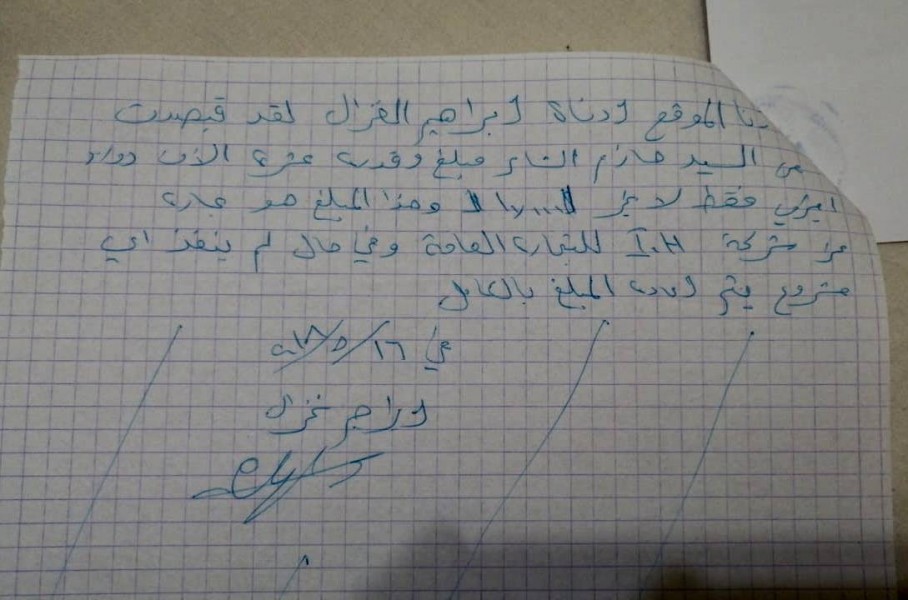 أنا الموقع ادناة ابراهيم الغزال لقد قبضت
من السيد حازم مبلغ وقدره عشرة الاف دولار
امركي فقط لا غير وهذا المبلغ هو عبارة
عن شركة I.H للتجارة العامة وفي حال لم ينفذ اي
مشروع يتم اعادة المبلغ بالكامل
في ١٦/٥/
ابراهيم غزال